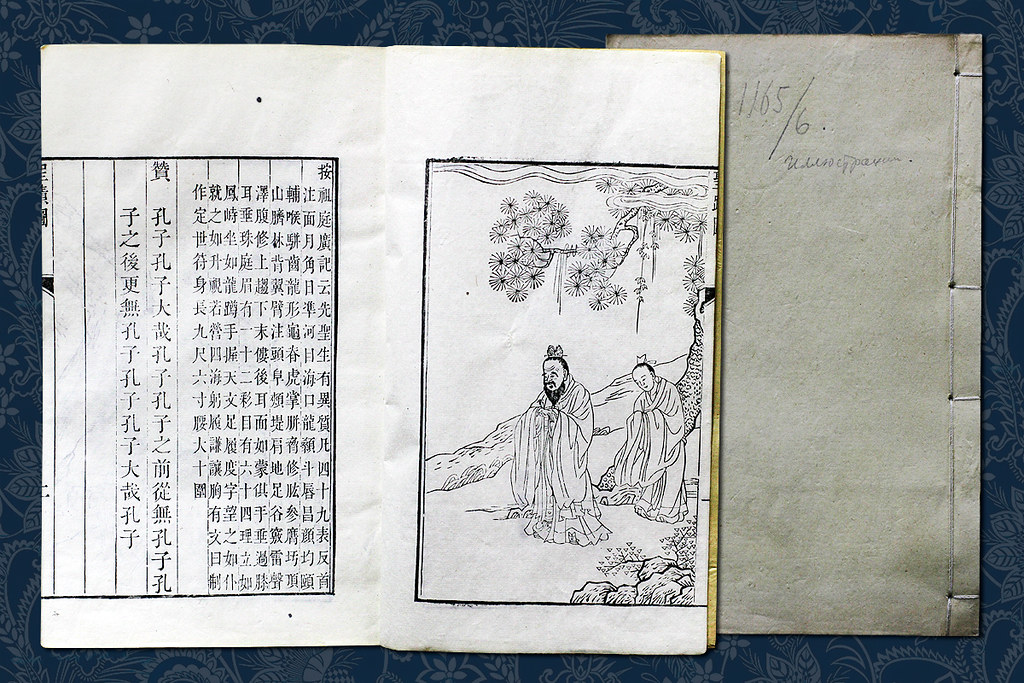 按祖庭廣記云先聖生有異質凡四十九表反首
注面月角日準河目海口龍顙斗唇昌顏均頤
輔喉騈齒龍形龜脊虎掌胼脅修肱參膺圩頂
山臍林背翼臂注頭阜頰堤肩地足谷竅雷聲
澤腹修上趨下末僂後耳面如蒙倛手垂過膝
耳垂珠庭眉有一十二彩目有六十四理立如
鳳峙坐如龍蹲手握天文足履度字望之如仆
就之如升視若營四海躬履謙讓胸有文曰制
作定世符身長九尺六寸腰大十圍
贊 孔子孔子大哉孔子孔子之前從無孔子孔
子之後更無孔子孔子孔子大哉孔子
聖蹟圖
1165/6.
Иллюстрации.